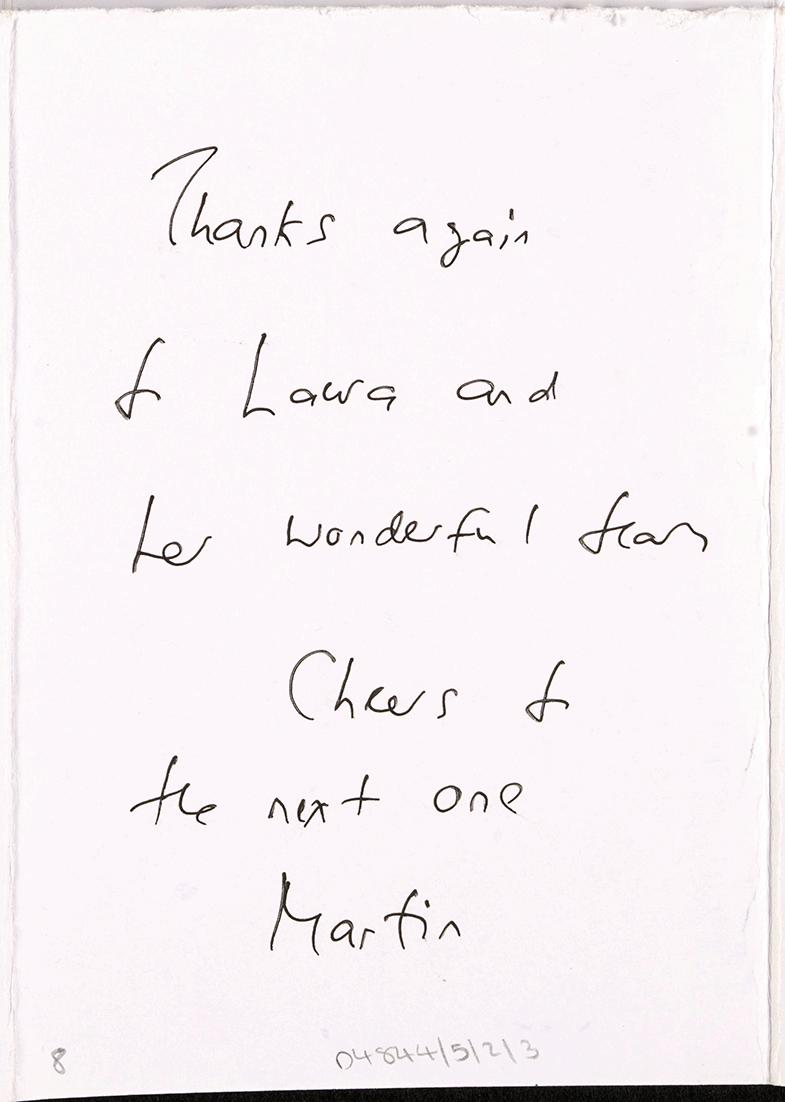 Thanks again
to Laura and
her wonderful team
Cheers to
the next one
Martin
8
D4844/5/2/3